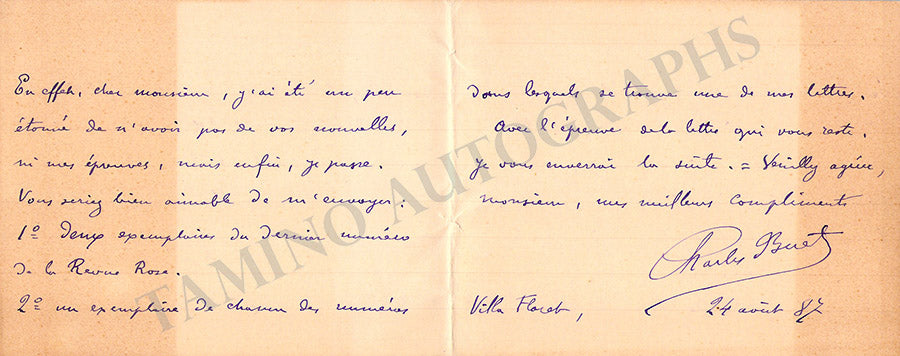 En effet, cher monsieur, j'ai été un peu
étonné de n'avoir pas de vos nouvelles,
ni mes épreuves, mais enfin, je passe.
Vous seriez bien aimable de m'envoyer :
1º deux exemplaires du dernier numéro
de la Revue Rose.
2º un exemplaire de chacun des numéros
dans lesquels se trouve une de mes lettres.
Avec l'épreuve de la lettre qui vous reste.
je vous enverrai la suite. = Veuillez agréer,
monsieur, mes meilleurs compliments
Charles Buet
Villa Floret,
24 août 87
TAMINO AUTOGRAPHS